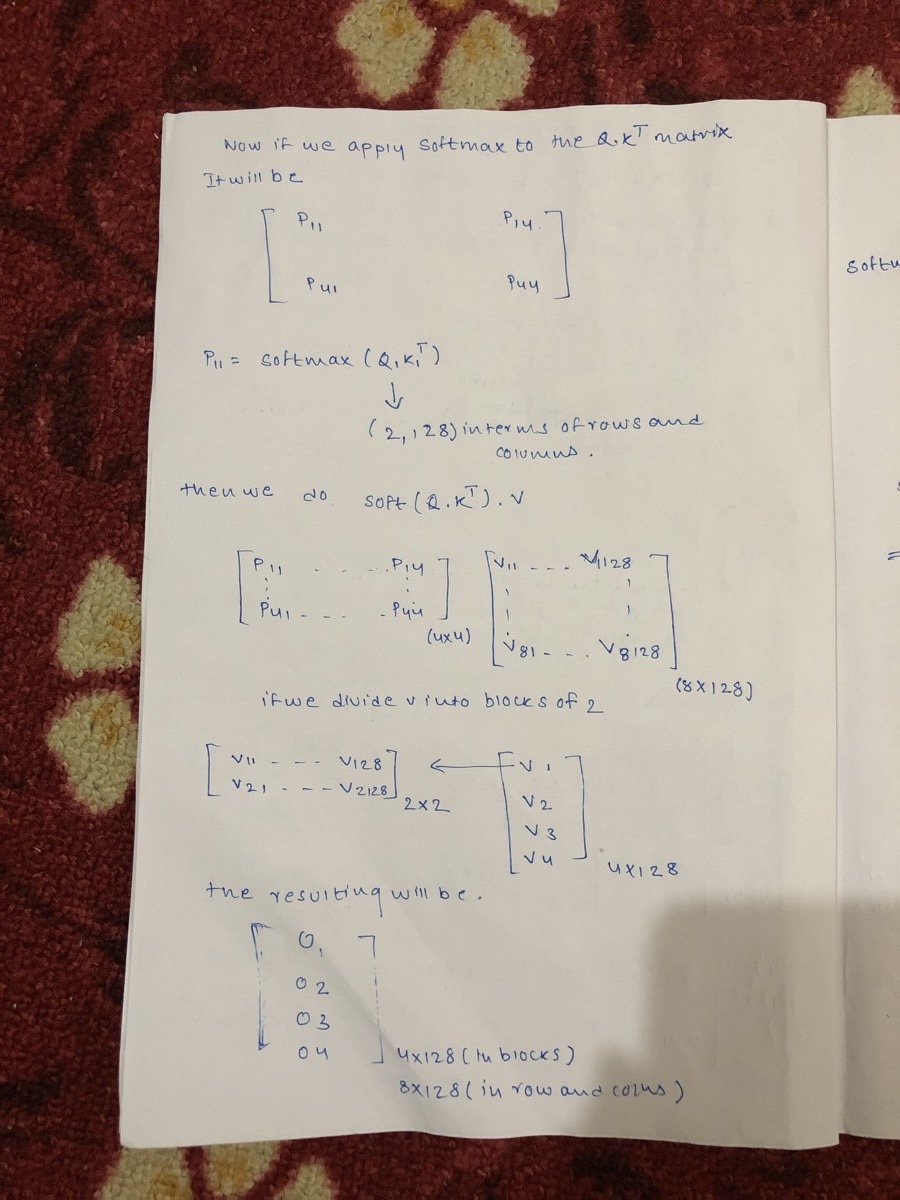 Now if we apply softmax to the Q.K^T matrix
It will be
P11 P14
P41 P44
P11 = softmax (Q1K1^T)
↓
(2,128) in terms of rows and
columns.
then we do soft (Q.K^T).V
P11 - - - P14 V11 - - - V1128
P41 - - - P44 V81 - - . V8128
(4x4)
(8X128)
if we divide v into blocks of 2
V11 - - - V128 ← V1
V21 - - - V2128
2x2
V2
V3
V4
4X128
the resulting will be.
O1
O2
O3
O4
4x128 (in blocks)
8X128 (in row and colns)
softw
=